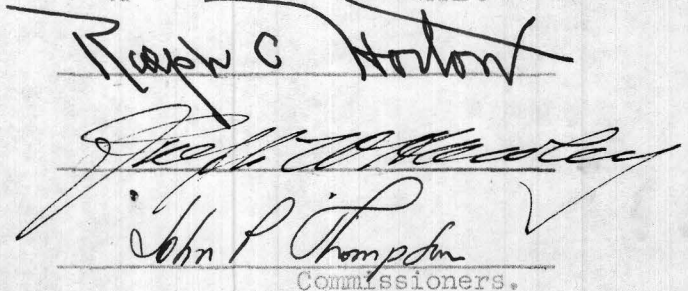 Ralph C Horton
Joseph W.
John P Thompson
Commissioners.